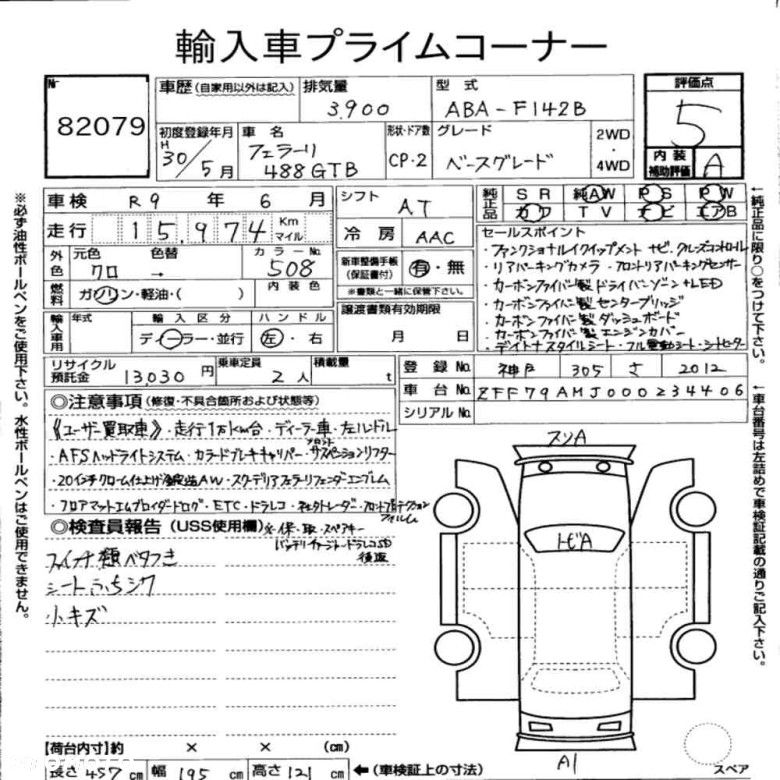 輸入車プライムコーナー
№ 82079
車歴 (自家用以外は記入) 排気量 3,900 型式 ABA-F142B
評価点 5
初度登録年月 H 30/5月 車名 フェラーリ 488GTB 形状・ドア数 CP・2 グレード ベースグレード 2WD・4WD
内装補助評価 A
車検 R9年6月 シフト AT 純正品 SR 純AW PS PW
走行 15,974 Km マイル 冷房 AAC カワ TV ナビ エアB
外色 元色 クロ 色替 → カラーNo. 508
新車整備手帳(保証書付) 有・無
※書類と一緒に保管下さい。
燃料 ガソリン・軽油・( ) 内装色
譲渡書類有効期限 月 日
輸入車用 年式 輸入区分 ディーラー・並行 ハンドル 左・右
セールスポイント
・ファンクショナルイクイップメント ナビ.クルーズコントロール
・リアパーキングカメラ・フロントリアパーキングセンサー
・カーボンファイバー製 ドライバーゾーン+LED
・カーボンファイバー製 センターブリッジ
・カーボンファイバー製 ダッシュボード
・カーボンファイバー製 エンジンカバー
・デイトナスタイルシート・フル電動シート・シートヒーター
リサイクル預託金 13,030円 乗車定員 2人 積載量 t
登録No. 神戸 305 さ 2012
車台No. ZFF79AMJ000234406
シリアルNo.
◎注意事項(修復・不具合箇所および状態等)
《ユーザー買取車》・走行1万km台・ディーラー車・左ハンドル
・AFSヘッドライトシステム・カラードブレーキキャリパー・フロントサスペンションリフター
・20インチクローム仕上げ鍛造AW・スクーデリアフェラーリフェンダーエンブレム
・フロアマットエムブロイダードロゴ・ETC・ドラレコ・フロントプロテクションフィルム
◎検査員報告(USS使用欄)
※保・取・スペアキー
バッテリーチャージャー・ドラレコSD
後送
スイッチ類ベタつき
シートふちシワ
小キズ
スソA
トビA
A1
スペア
【荷台内寸】約 × × (cm)
長さ 457 cm 幅 195 cm 高さ 121 cm ←(車検証上の寸法)
※必ず油性ボールペンをご使用下さい。水性ボールペンはご使用できません。
←純正品に限り○をつけて下さい。
←車台番号は左詰めで車検証記載の通りご記入下さい。